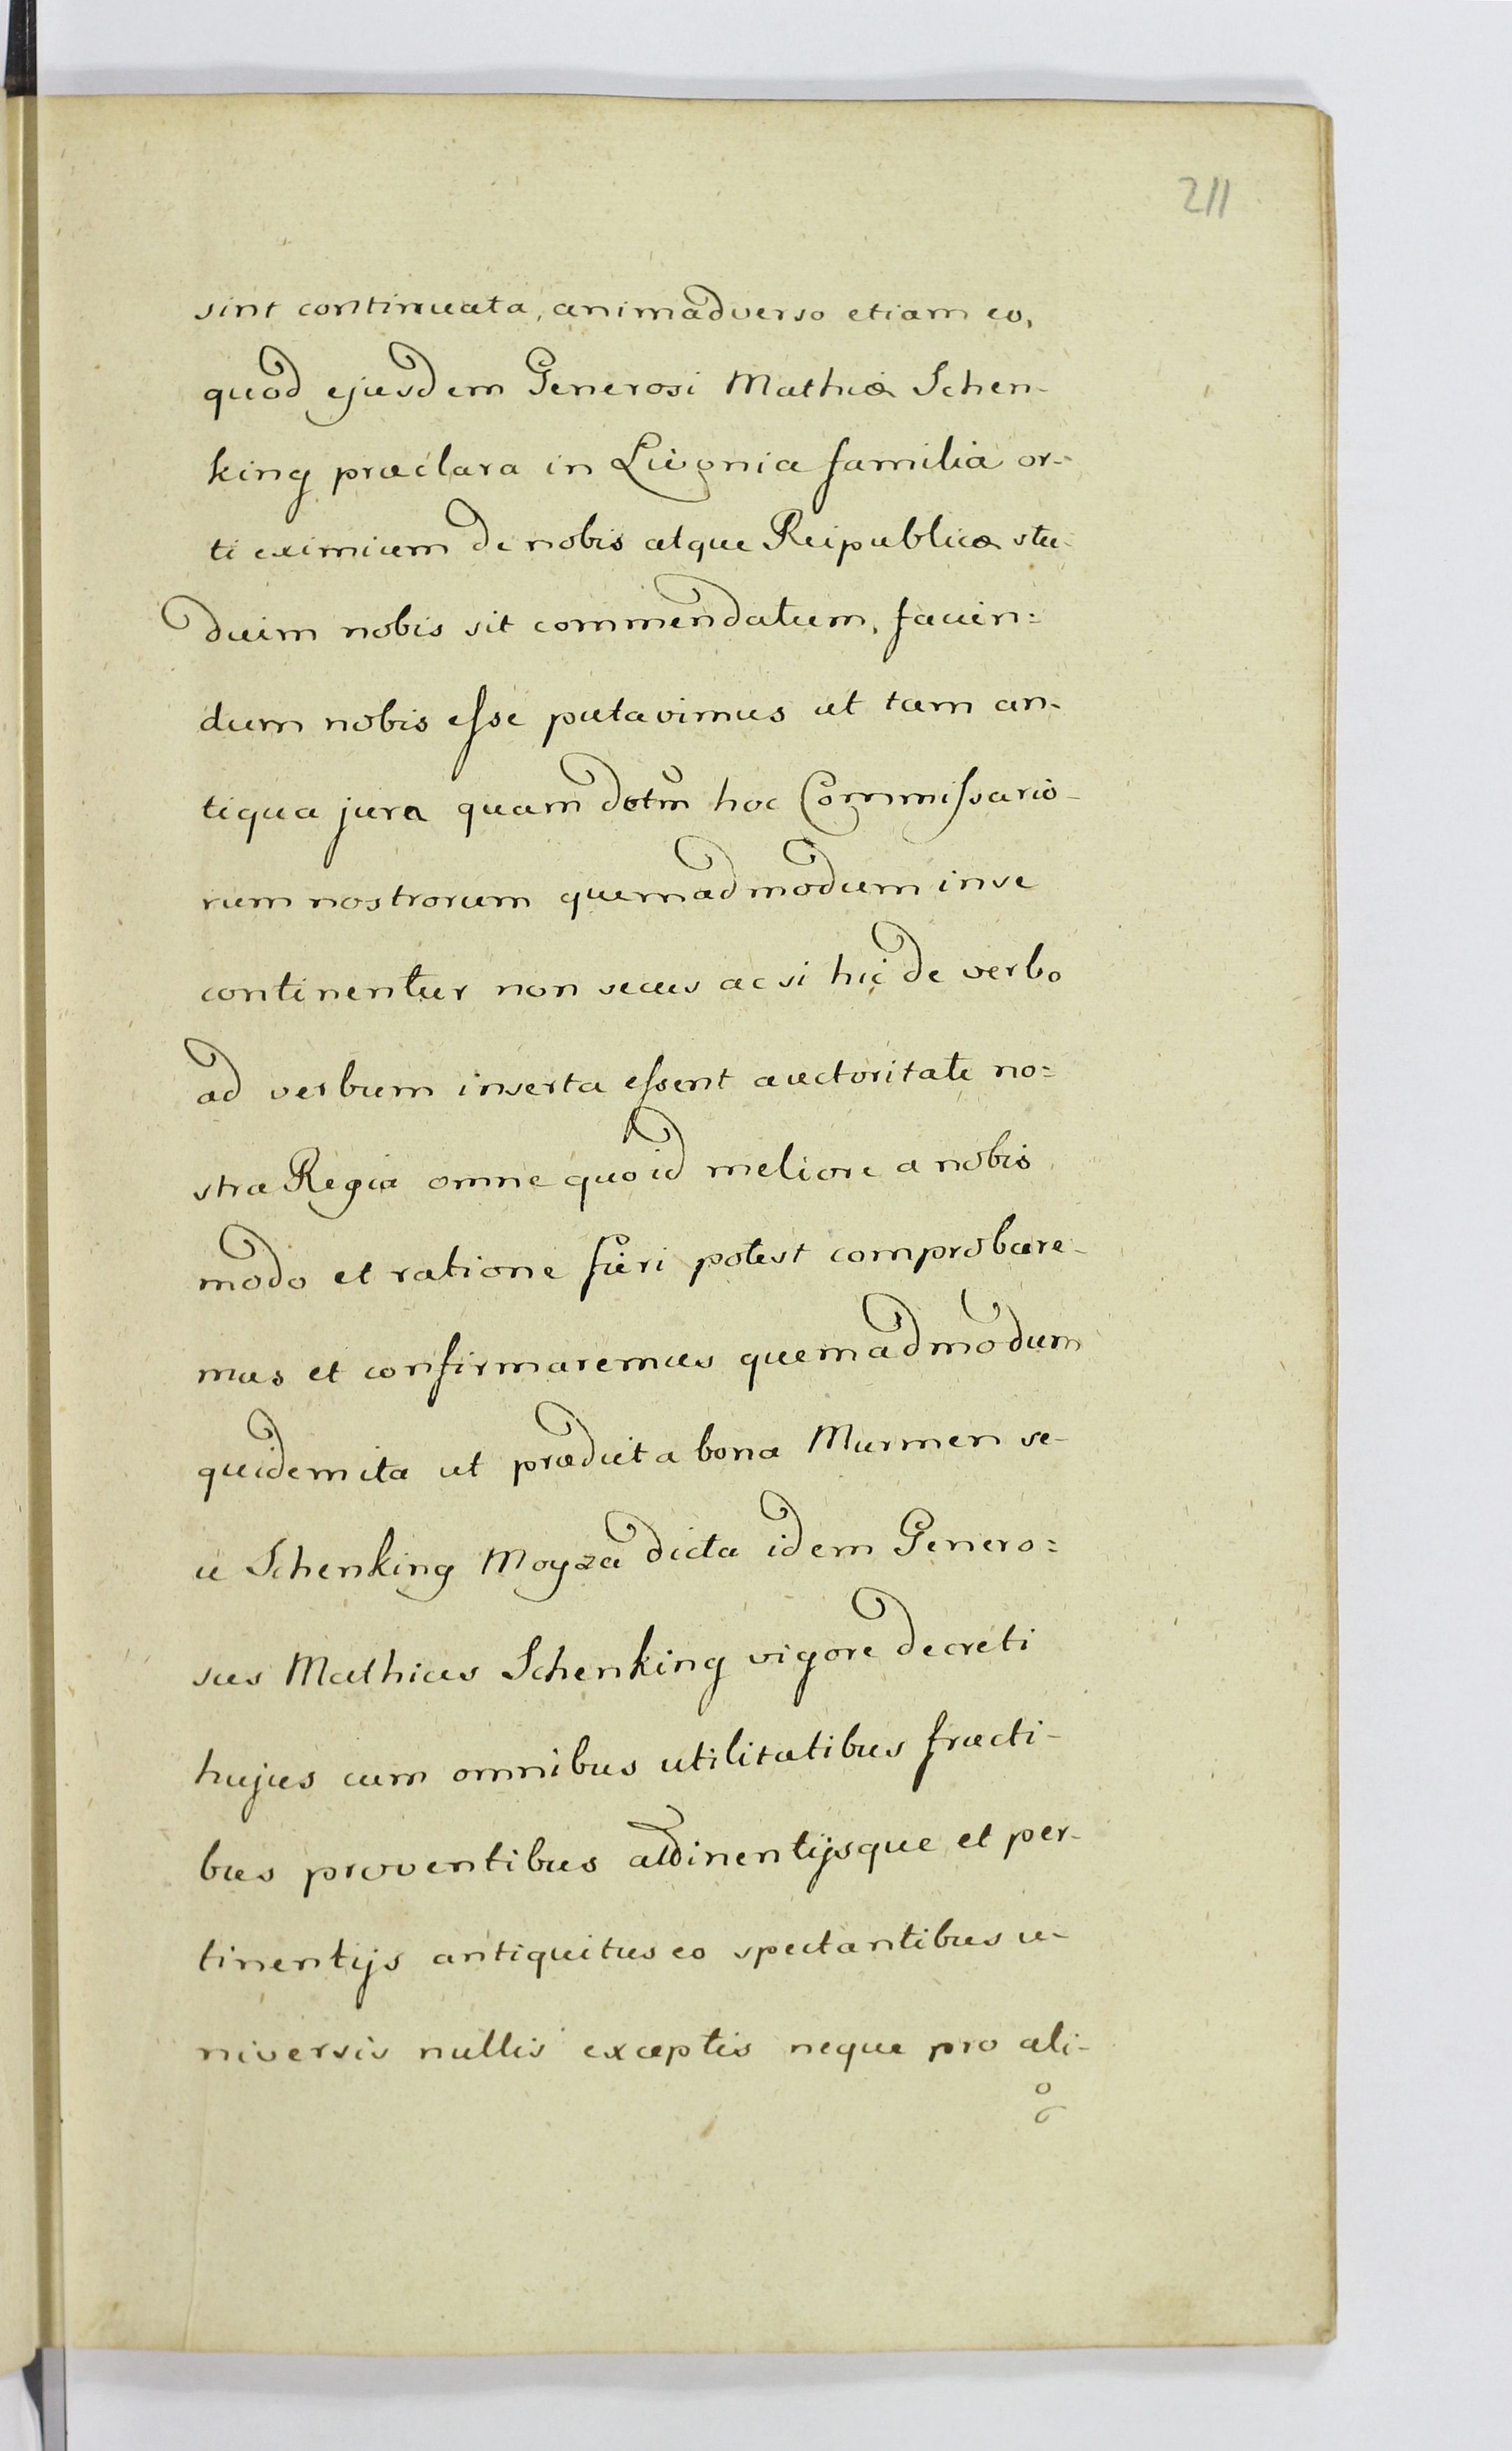 211
sint continuata, animadverso etiam eo,
quod ejusdem Generosi Mathiæ Schen-
king præclara in Livonia familia or-
ti eximium de nobis atque Reipublicæ stu-
duim nobis sit commendatum, facien=
dum nobis eſse putavimus ut tam an-
tiqua jura quam detm hoc Commiſsario-
rum nostrorum quemadmodum in se
continentur non secus ac si hic de verbo
ad verbum inserta eſsent auctoritate no=
stra Regia omne quo id meliore a nobis
modo et ratione fieri potest comprobare-
mus et confirmaremus quemadmodum
quidem ita ut prædicta bona Murmen se-
u Schenking Moyza dicta idem Genero=
sus Mathias Schenking vigore decreti
hujus cum omnibus utilitatibus fructi-
bus proventibus attinentijsque et per-
tinentijs antiquitus eo spectantibus u-
niversis nullis exceptis neque pro ali-